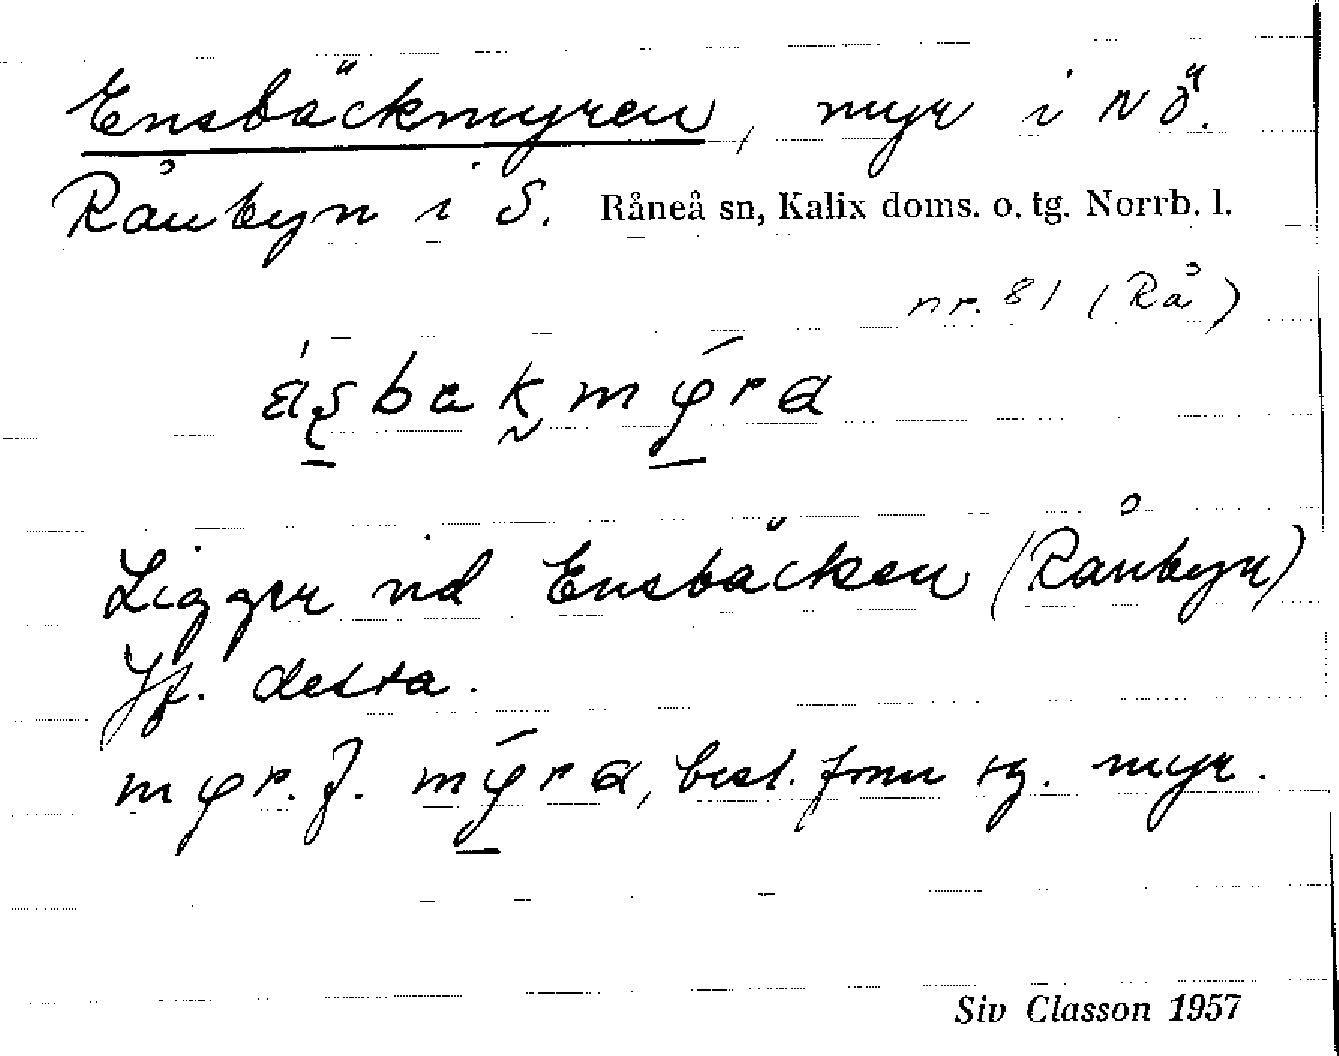 Ensbäckmyren, myr i NÖ.
Rånbyn i S. Råneå sn, Kalix doms. o. tg. Norrb. l.
nr. 81 (Rå)
Ligger vid Ensbäcken (Rånbyn)
Jf. detta.
myr. f. mýra, best. form sg. myr.
Siv Classon 1957